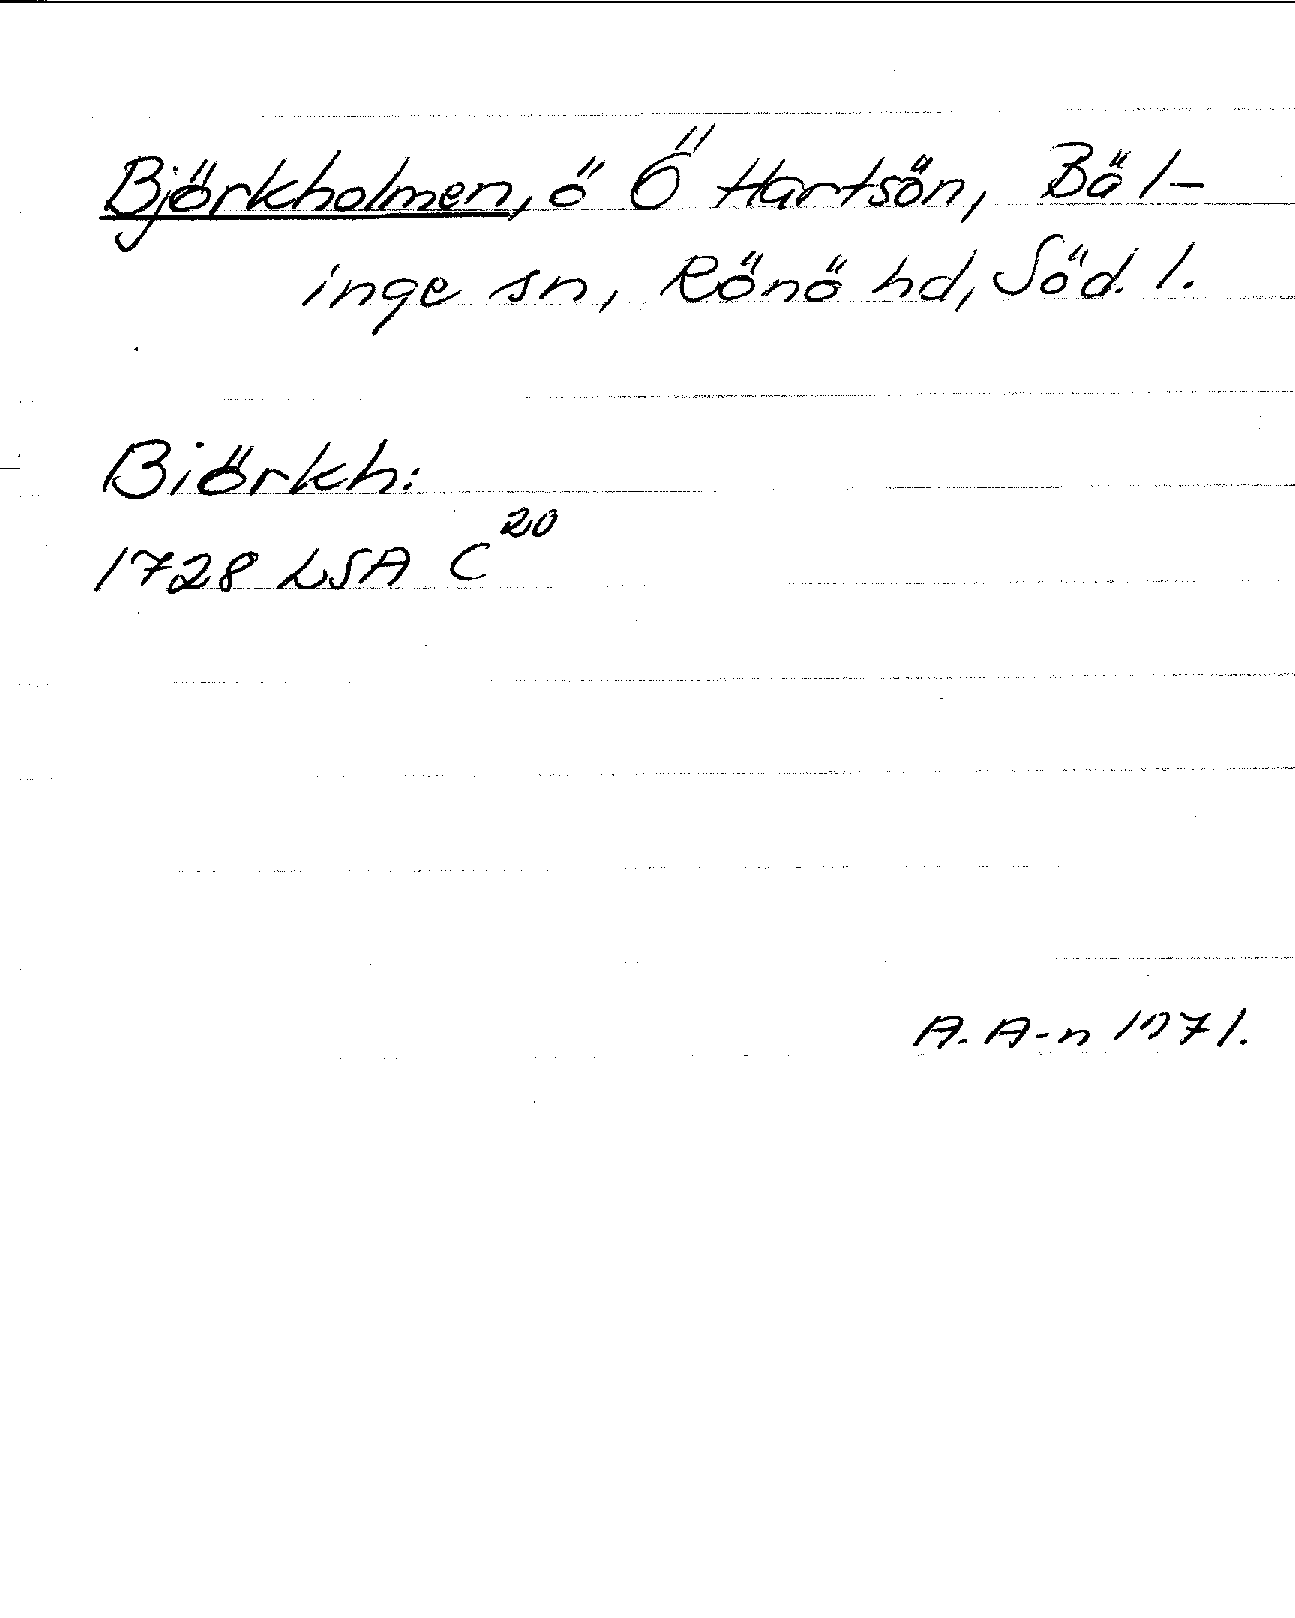 Björkholmen, ö Ö Hartsön, Bäl-
inge sn, Rönö hd, Söd. l.
Biörkh:
1728 LSA C²⁰
A. A-n 1971.